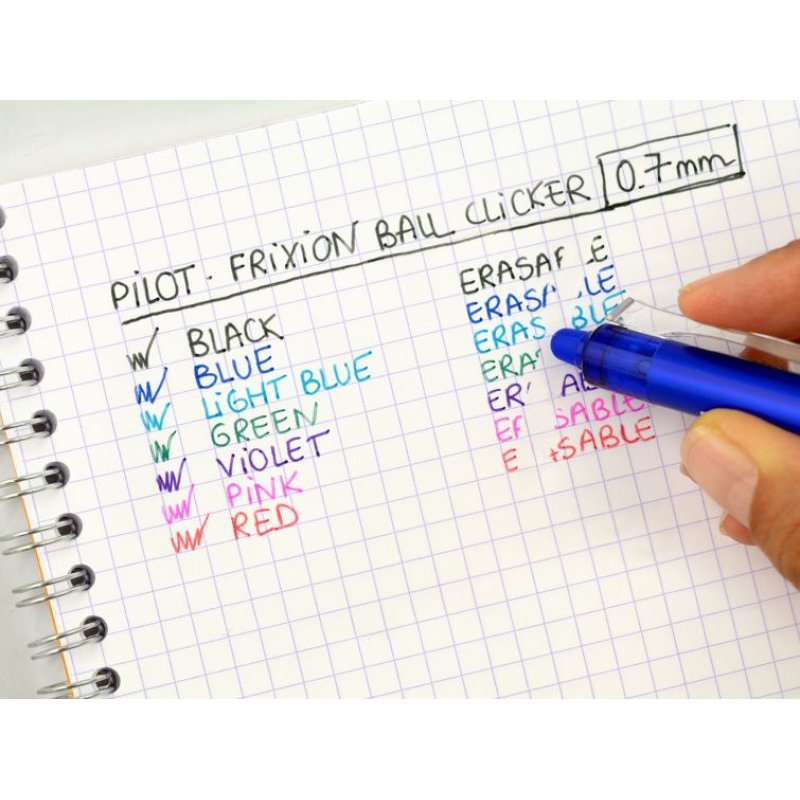 PiLOT. FRiXiON BALL CLiCKER 0.7mm
BLACK
BLUE
LiGHT BLUE
GREEN
ViOLET
PiNK
RED
ERASA E
ERASA LE
ERAS BLE
ERA
ER
E SABLE
E SABLE